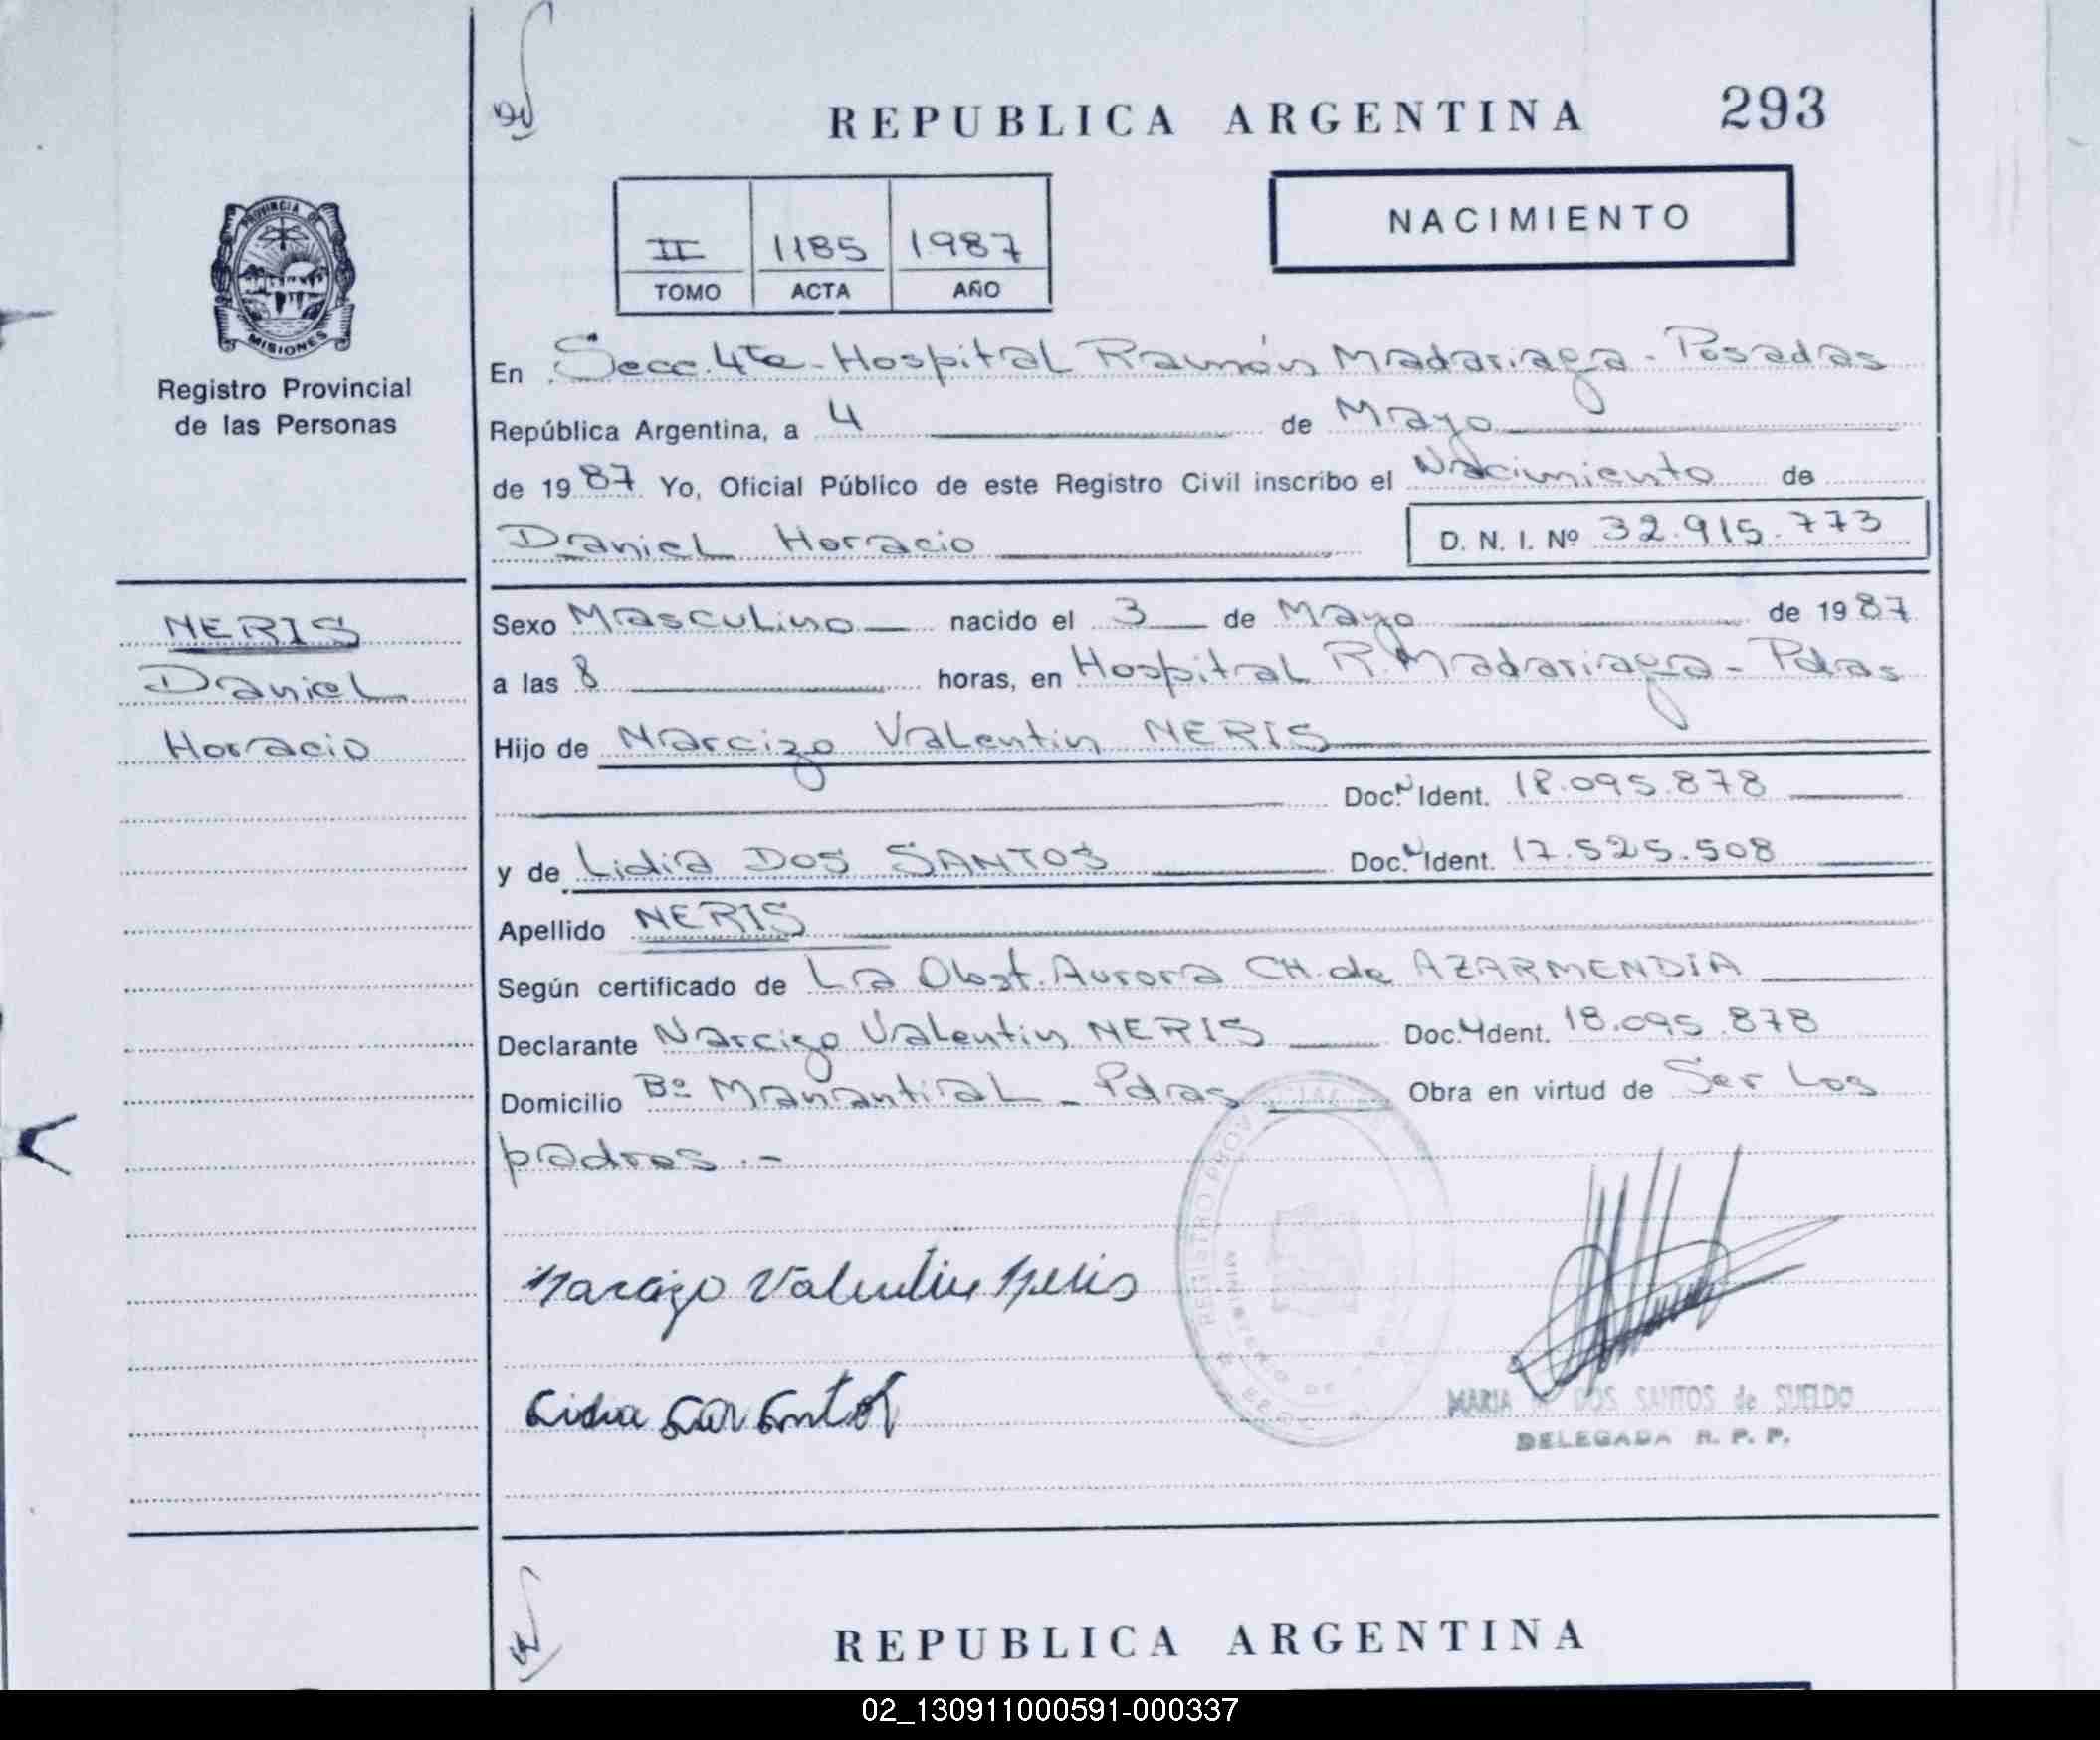 REPUBLICA ARGENTINA 293
II 1185 1987
TOMO ACTA AÑO
NACIMIENTO
PROVINCIA DE
MISIONES
Registro Provincial
de las Personas
En Secc. 4ta - Hospital Ramón Madariaga - Posadas
República Argentina, a 4 de Mayo
de 1987 Yo, Oficial Público de este Registro Civil inscribo el Nacimiento de
Daniel Horacio D. N. I. Nº 32.915.773
NERIS
Daniel
Horacio
Sexo Masculino nacido el 3 de Mayo de 1987
a las 8 horas, en Hospital R. Madariaga - Pdas
Hijo de Narcizo Valentin NERIS
Doc. Ident. 18.095.878
y de Lidia DOS SANTOS Doc. Ident. 17.525.508
Apellido NERIS
Según certificado de La Obst. Aurora CH. de AZARMENDIA
Declarante Narcizo Valentin NERIS Doc. Ident. 18.095.878
Domicilio Bº Manantial - Pdas Obra en virtud de Ser Los
padres.-
Narcizo Valentin Neris
MARIA DOS SANTOS de SUELDO
DELEGADA R. P. P.
REPUBLICA ARGENTINA
02_130911000591-000337